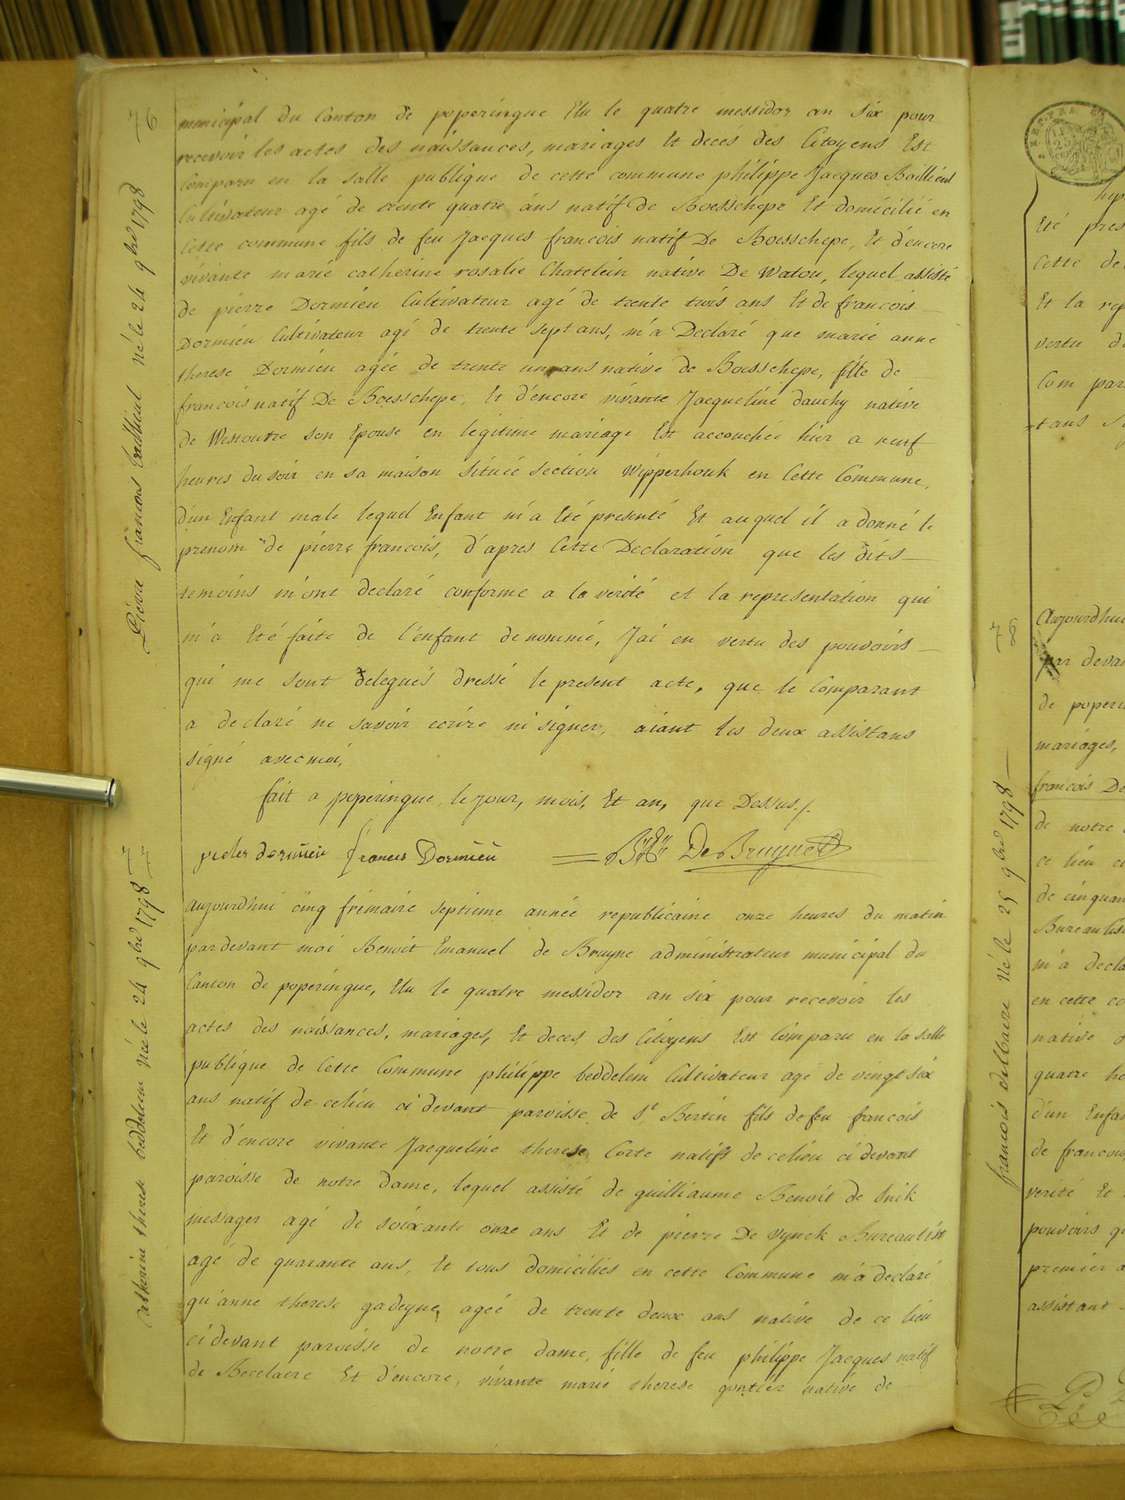 76
Pierre francois Bailleul Né le 24 9bre 1798
municipal du Canton de poperingue Elu le quatre messidor an six pour
recevoir les actes des naissances, mariages Et deces des Citoyens Est
Comparu en la salle publique de cette commune philippe Jacques Bailleul
Cultivateur agé de trente quatre ans natif de Boesschepe Et domicilié en
Cette commune fils de feu Jacques francois natif De Boesschepe, Et d'encore
vivante marie catherine rosalie Chatelein native De Watou, lequel assisté
de pierre Dormieu Cultivateur agé de trente trois ans Et de francois
Dormieu Cultivateur agé de trente sept ans, m'a Declaré que marie anne
therese Dormieu agée de trente un ans native de Boesschepe, fille de
francois natif De Boesschepe, Et d'encore vivante Jacqueline dauchy native
de Westoutre son Epouse en legitime mariage Est accouchée hier a neuf
heures du soir en sa maison située section Wipperhouk en Cette Commune,
d'un Enfant male lequel Enfant m'a Eté presenté Et auquel il a donné le
prenom de pierre francois, d'apres Cette Declaration que les dits
temoins m'ont declaré conforme a la verité et la representation qui
m'a Eté faite de l'enfant denommé, J'ai en vertu des pouvoirs
qui me sont delegués dressé le present acte, que le Comparant
a declaré ne savoir ecrire ni signer, aiant les deux assistans
signé avec moi,
fait a poperingue le jour, mois, Et an, que Dessus /.
pieter dormieu francis Dormieu De Bruyne
77
Catherine therese beddelem Née le 24 9bre 1798
aujourd'hui cinq frimaire septieme année republicaine onze heures du matin
pardevant moi Benoit Emanuel de Bruyne administrateur municipal du
Canton de poperingue, Elu le quatre messidor an six pour recevoir les
actes des naissances, mariages, Et deces des Citoyens Est Comparu en la salle
publique de Cette Commune philippe beddelem Cultivateur agé de vingt six
ans natif de ce lieu ci devant paroisse de St Bertin fils de feu francois
Et d'encore vivante Jacqueline therese Corte natifs de ce lieu ci devant
paroisse de notre dame, lequel assisté de guilliaume Benoit de Snik
messager agé de soixante onze ans Et de pierre De Vynck Bureauliste
agé de quarante ans, Et tous domiciliés en cette Commune m'a declaré
qu'anne therese gadeyne, agée de trente deux ans native de ce lieu
ci devant paroisse de notre dame, fille de feu philippe Jacques natif
de Becelaere Et d'encore vivante marie therese gontier native de
78
francois delbaere Né le 25 9bre 1798
Eté pres
Cette de
Et la rep
vertu d
Com par
tans
Aujourdhui
par deva
de poperi
mariages,
francois De
de notre
ce lieu ci
de cinquan
Bureaulis
m'a decla
en cette co
native
quatre he
d'un Enfa
de francois
verité Et
pouvoirs q
premier a
assistant